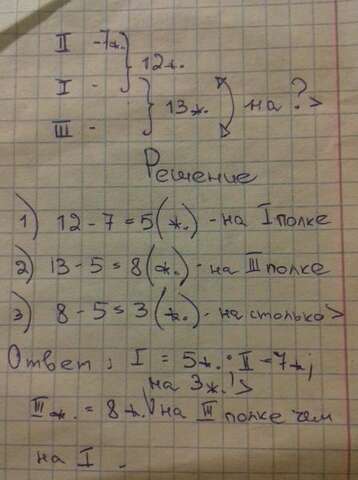 II - 7ж. } 12ж.
I -
III - } 13ж. на ? >
Решение
1) 12 - 7 = 5 (ж.) - на I полке
2) 13 - 5 = 8 (ж.) - на III полке
3) 8 - 5 = 3 (ж.) - на столько >
Ответ: I = 5ж. II = 7ж;
на 3ж. >
III ж. = 8ж. на III полке чем
на I .